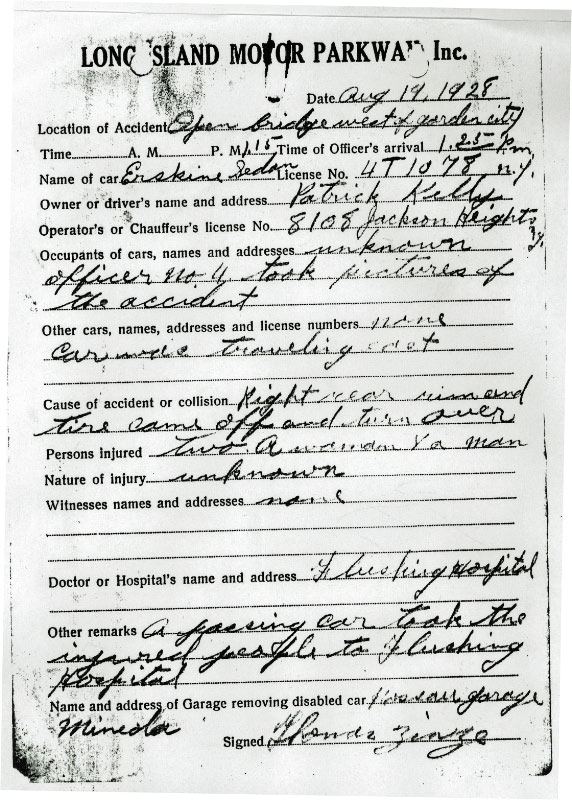 LONG ISLAND MOTOR PARKWAY Inc.
Date Aug 19, 1928
Location of Accident Open bridge west of garden city
Time A. M. P. M. 1.15 Time of Officer's arrival 1.25 P.m.
Name of car Erskine Sedan License No. 4T1078 n.y.
Owner or driver's name and address Patrick Kelly
Operator's or Chauffeur's license No. 8108 Jackson Heights
Occupants of cars, names and addresses unknown
officer No 4 took pictures of
the accident
Other cars, names, addresses and license numbers none
Car was traveling east
Cause of accident or collision Right rear rim and
tire came off and turn over
Persons injured two A woman & a man
Nature of injury unknown
Witnesses names and addresses none
Doctor or Hospital's name and address Flushing Hospital
Other remarks A passing car took the
injured people to Flushing
Hospital
Name and address of Garage removing disabled car Nassau garage
Mineola
Signed